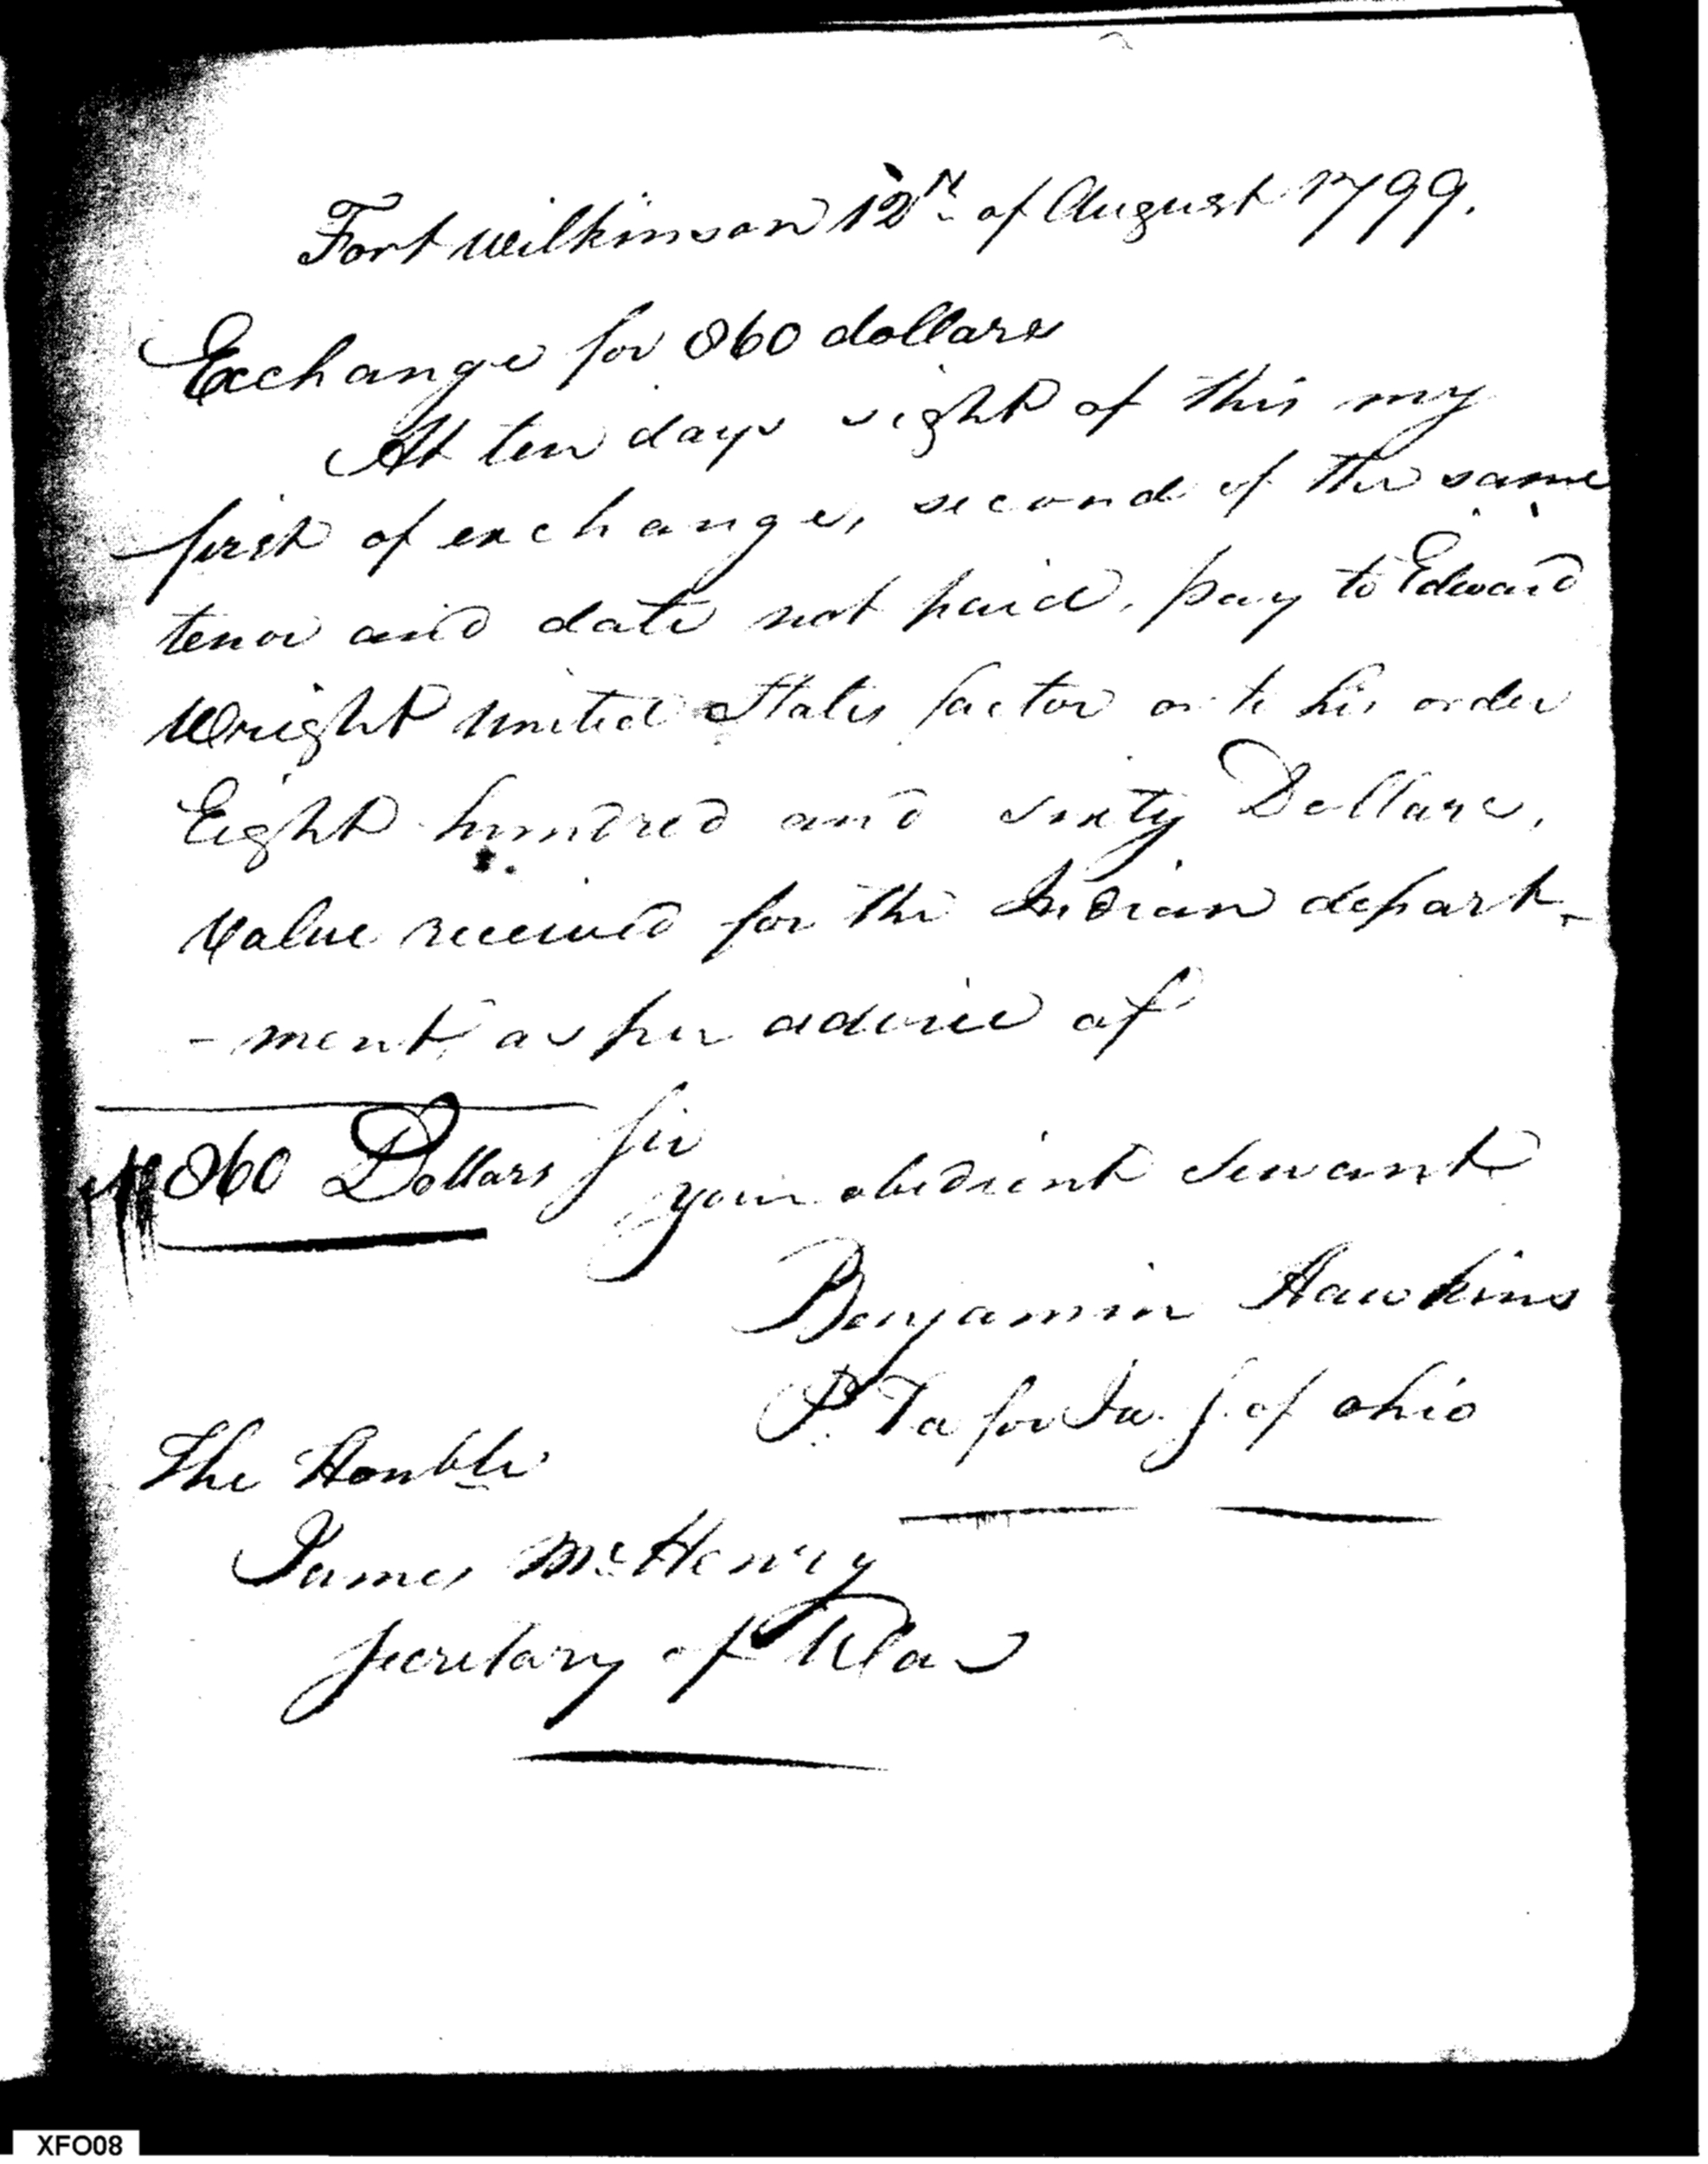 Fort Wilkinson 12th of August 1799.
Exchange for 860 dollars
At ten days sight of this my
first of exchange, second of the same
tenor and date not paid, pay to Edward
Wright United States factor or to his order
Eight hundred and sixty Dollars,
Value received for the Indian depart-
-ment, as per advice of
860 Dollars Sir
your obedient servant
Benjamin Hawkins
P. T a for In. S. of Ohio
The Honble
James McHenry
Secretary of War
XFO08